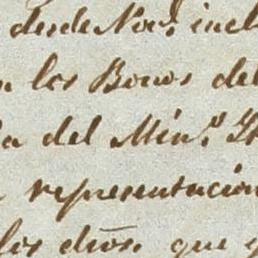 desde Nov.e incl
los Bonos del
a del Min.o
representacion
los dros. que